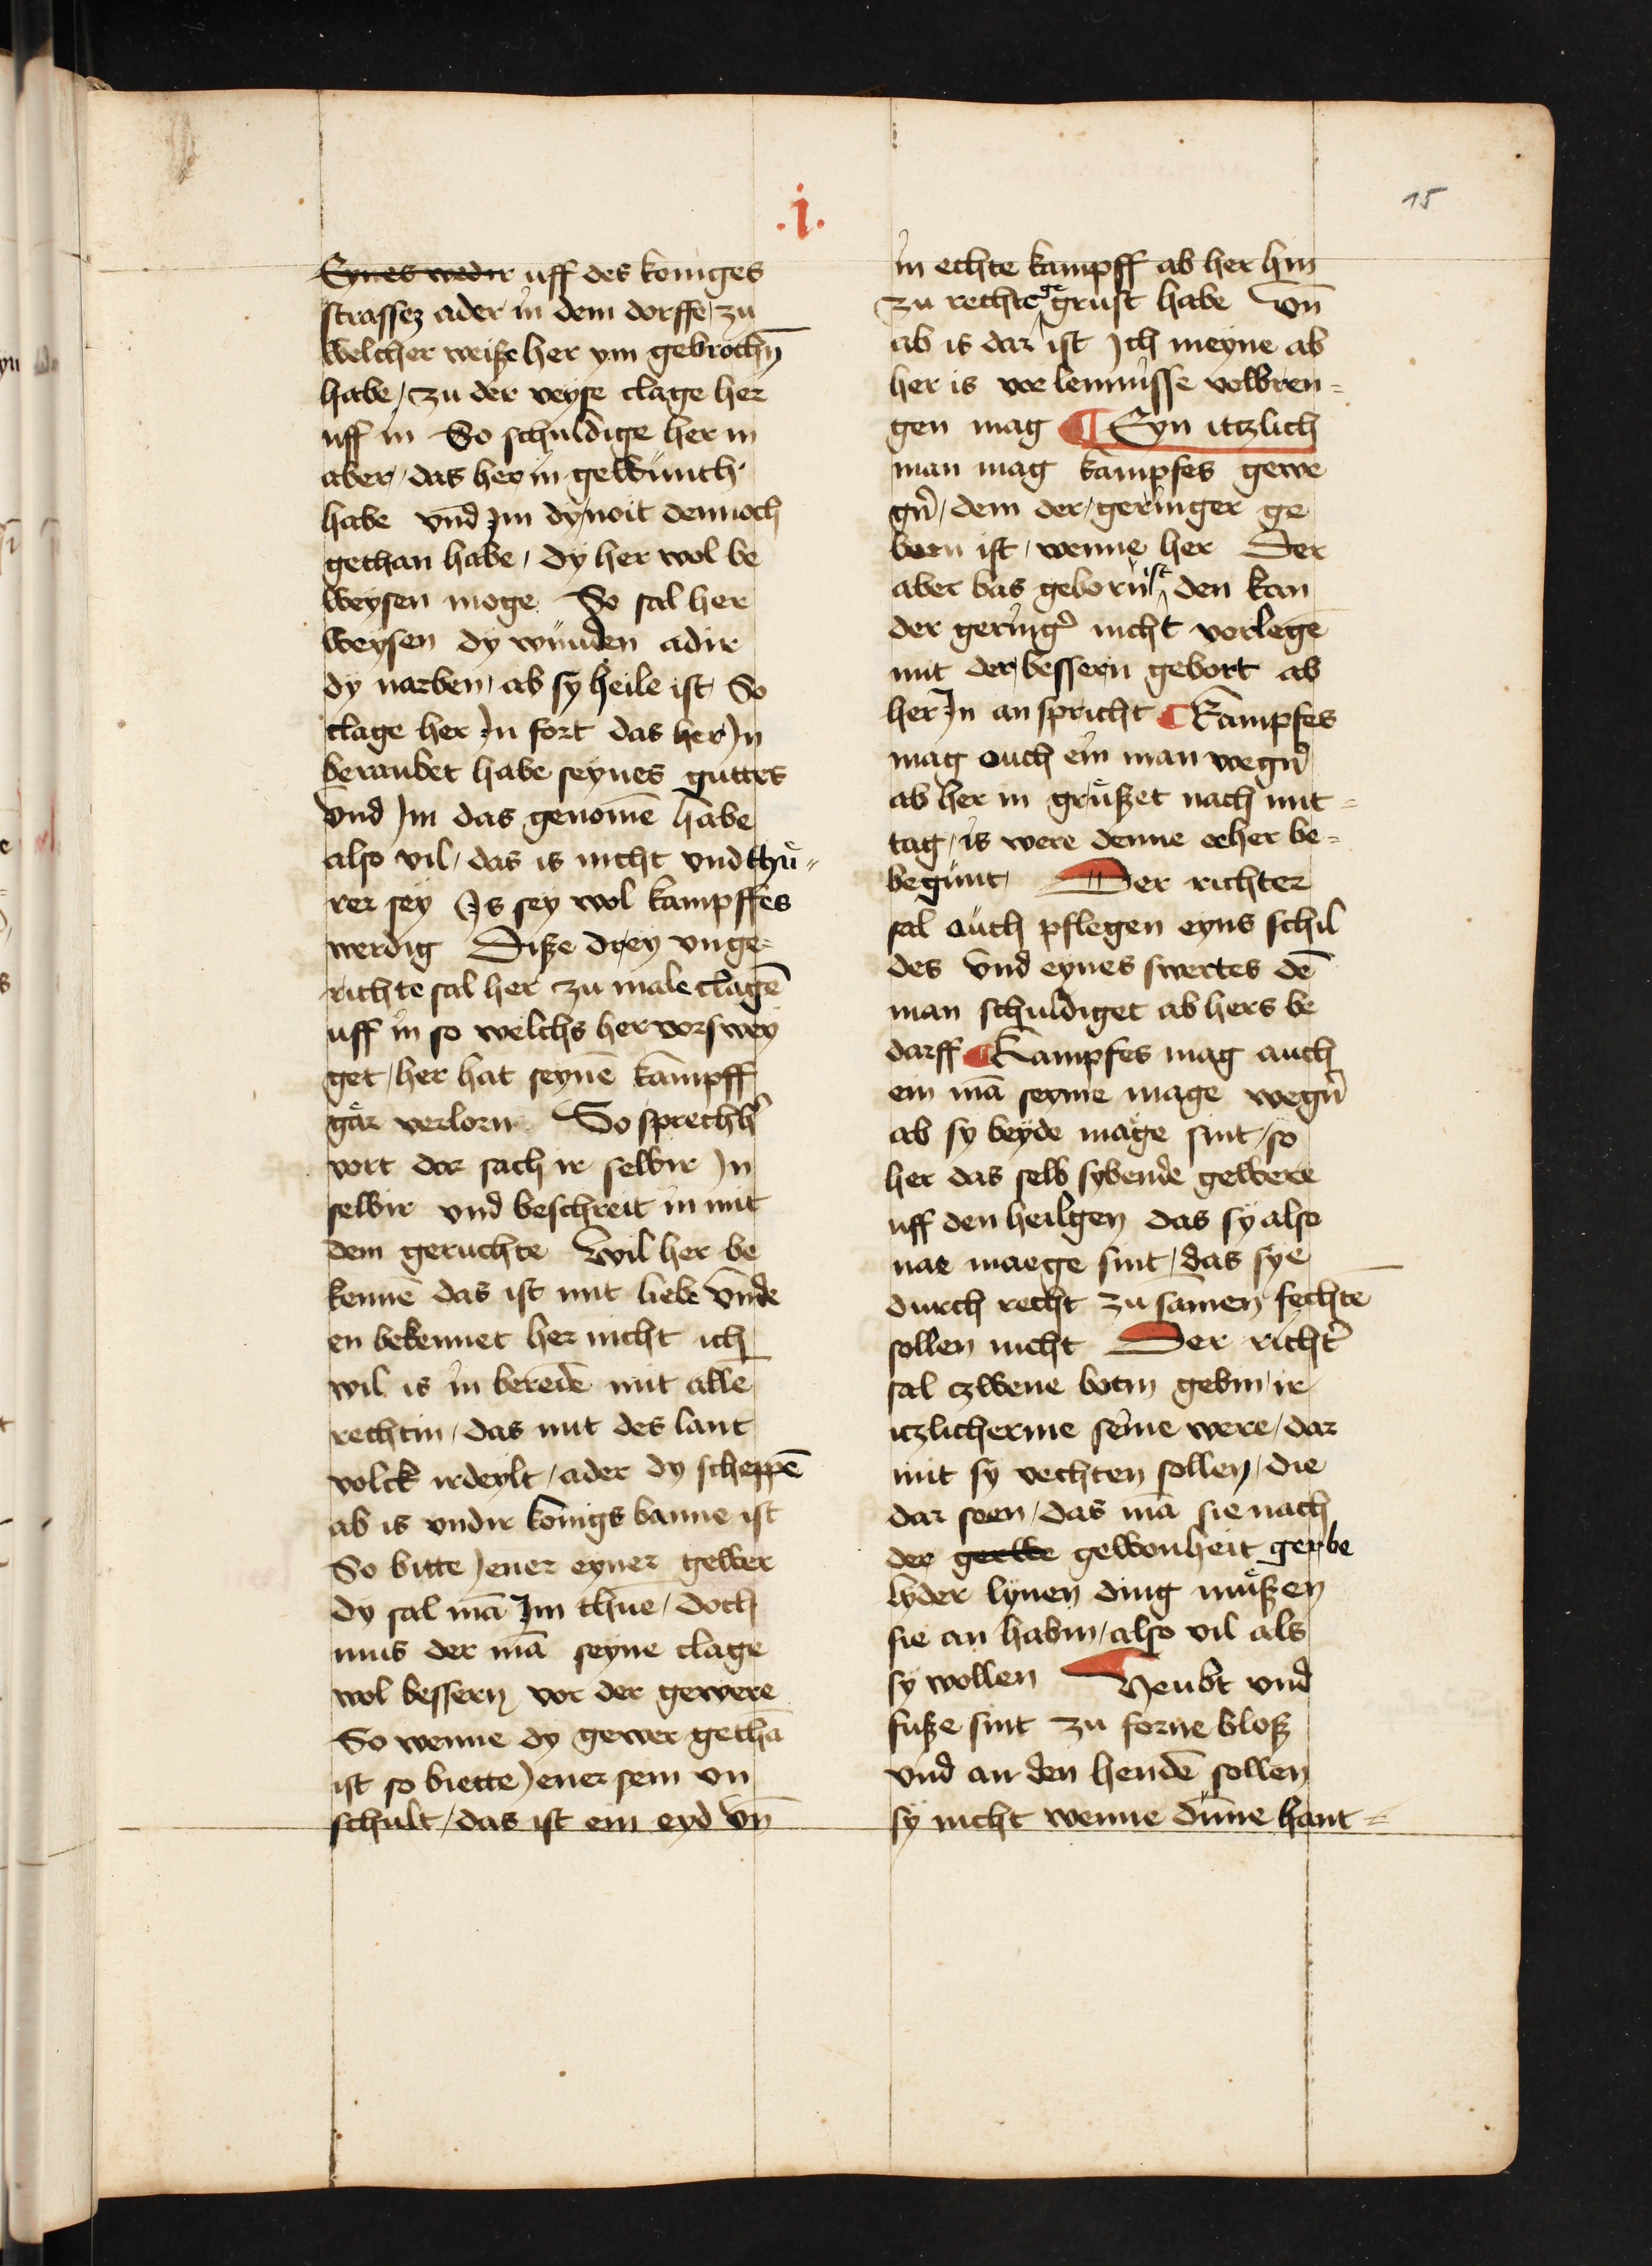 15
.i.
Eynes wedir uff des koniges
strassez ader in dem dorffe / zu
welcher weiße her ym gebrochn̄
habe / zu der veyse clage her
uff in So schuldige her in
aber / das her in gewunth
habe vnd Jm dy noit dennoch
gethan habe / dy her wol be
weysen moge So sal her
weysen dy wunden adir
dy narben / ab sy heile ist So
clage her Jn fort das her Jn
beraubet habe seynes guttes
vnd Jm das genomē habe
also vil / das is nicht vnd thu̇-
rer sey Js sey wol kampffes
werdig Diße drey vnge-
richte sal her zu male clagē
uff in so welchs her vorswey
get / her hat seynē kampff
gar verlorn So sprech h̓
vort dor sach ir selbir Jn
selbir vnd beschreit in mit
dem geruchte Wil her be
kennē das ist mit liebe vnde
en bekennet her nicht ich
wil is in beredē mit allē
rechtin / das mit des lant
volck irdeylt / ader dy scheppē
ab is vndir konigs banne ist
So bitte Jener eyner gewer
dy sal mā Jm thue / doch
mus der mā seyne clage
wol bessern vor der gewere
So wenne dy gewer gethā
ist so biette Jener sein vn
schult / das ist ein eyd vn̄
in echte kampff ab her hin
zu rechte ge grust habe vn̄
ab is dar ist Jch meyne ab
her is vor lemnusse volbren-
gen mag ¶ Eyn itzlich
man mag kampfes gewe
gn̓ / dem der / geringer ge
born ist / wenne her Der
aber bas geborn ist den kan
der gering̓ nicht vorlegē
mit der bessern gebort ab
her Jn an spricht ¶ Kampfes
mag ouch ein man wegn̓
ab her in gru̇ßet nach mit-
tag / is were denne eeher be-
begunt Der richter
sal auch pflegen eyns schil
des vnd eynes swertes dē
man schuldiget ab hers be
darff ¶ Kampfes mag auch
ein mā seyme mage wegn̓
ab sy beyde mage sint / so
her das selb sybende gewere
uff den heilgen das sy also
nae maege sint / das sye
durch recht zu samen fechtē
sollen nicht Der richt̓
sal czwene botin gebin / ir
itzlicherme seine were / dar
mit sy vechten sollen / die
dar seen / das mā sie nach
der gewonheit gerbe
lyder lynen ding mu̇ßen
sie an habin / also vil als
sy wollen Heubt vnd
fuße sint zu forne bloß
vnd an den hendē sollen
sy nicht wenne dünne hant-